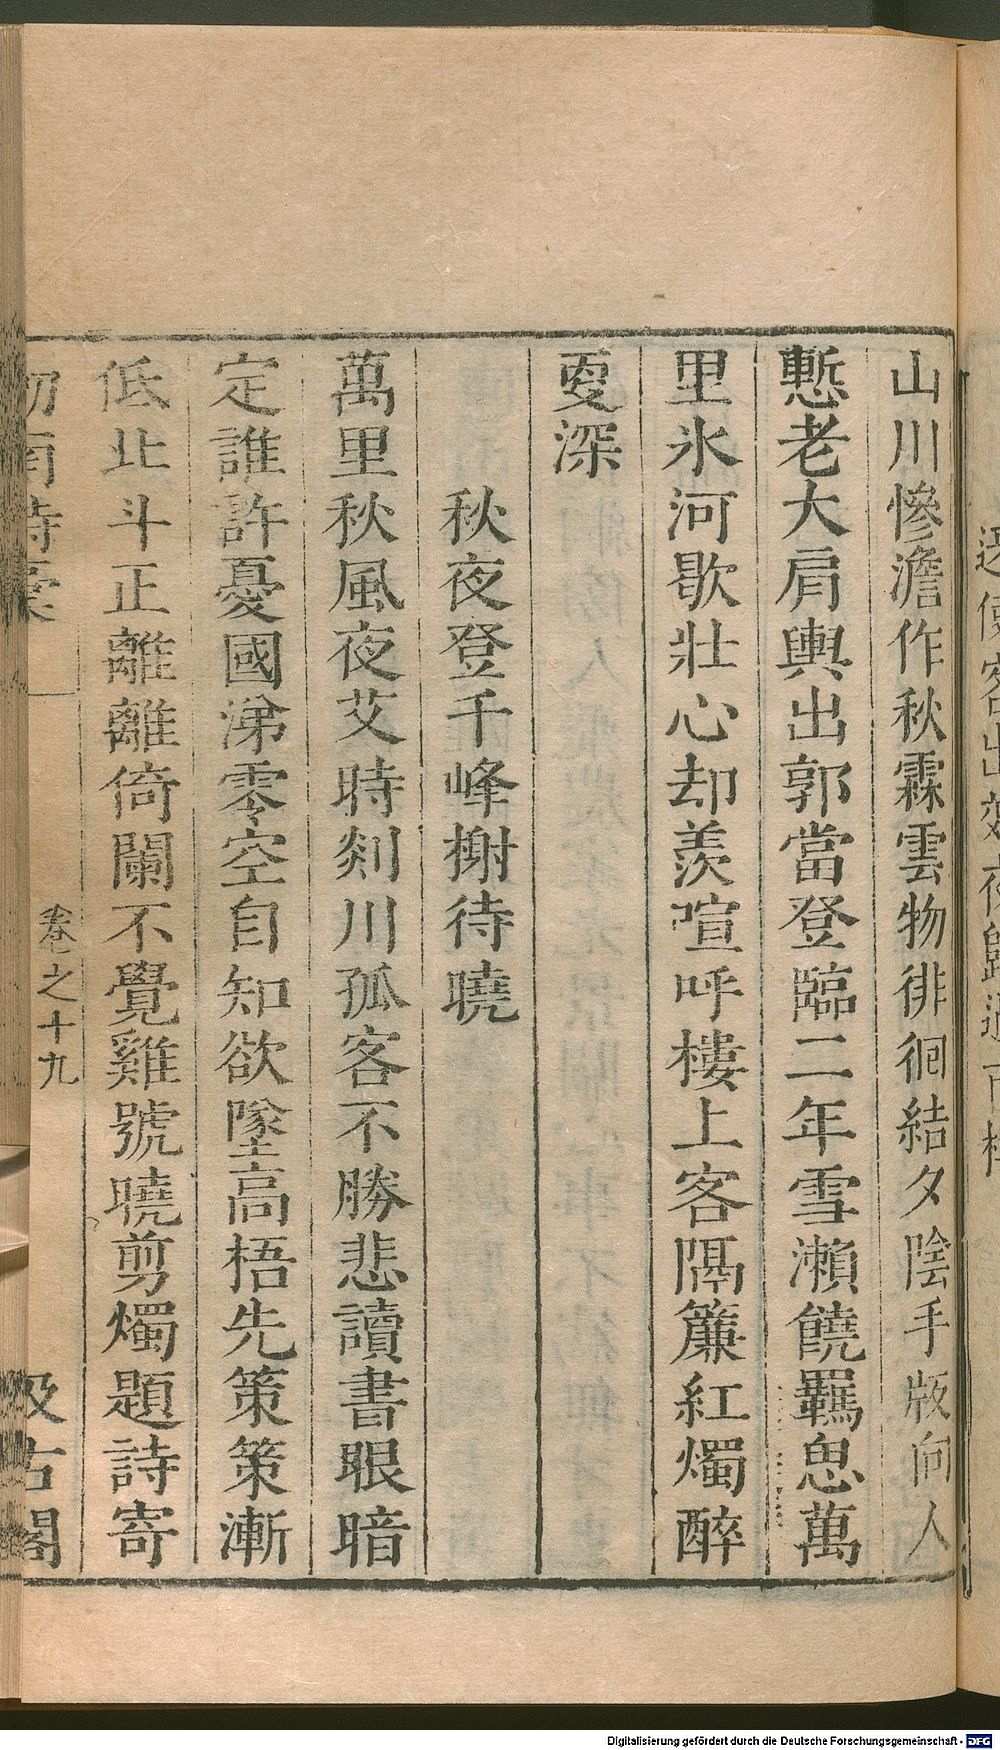 送使客出郊夜歸過市樓
山川慘澹作秋霖雲物徘徊結夕陰手版向人
慙老大肩輿出郭當登臨二年雪瀨饒羈思萬
里氷河歇壯心却羨喧呼樓上客隔簾紅燭醉
更深
秋夜登千峰榭待曉
萬里秋風夜艾時剡川孤客不勝悲讀書眼暗
定誰許憂國涕零空自知欲墜高梧先策策漸
低北斗正離離倚闌不覺雞號曉剪燭題詩寄
劒南詩稾
卷之十九
汲古閣
Digitalisierung gefördert durch die Deutsche Forschungsgemeinschaft - DFG